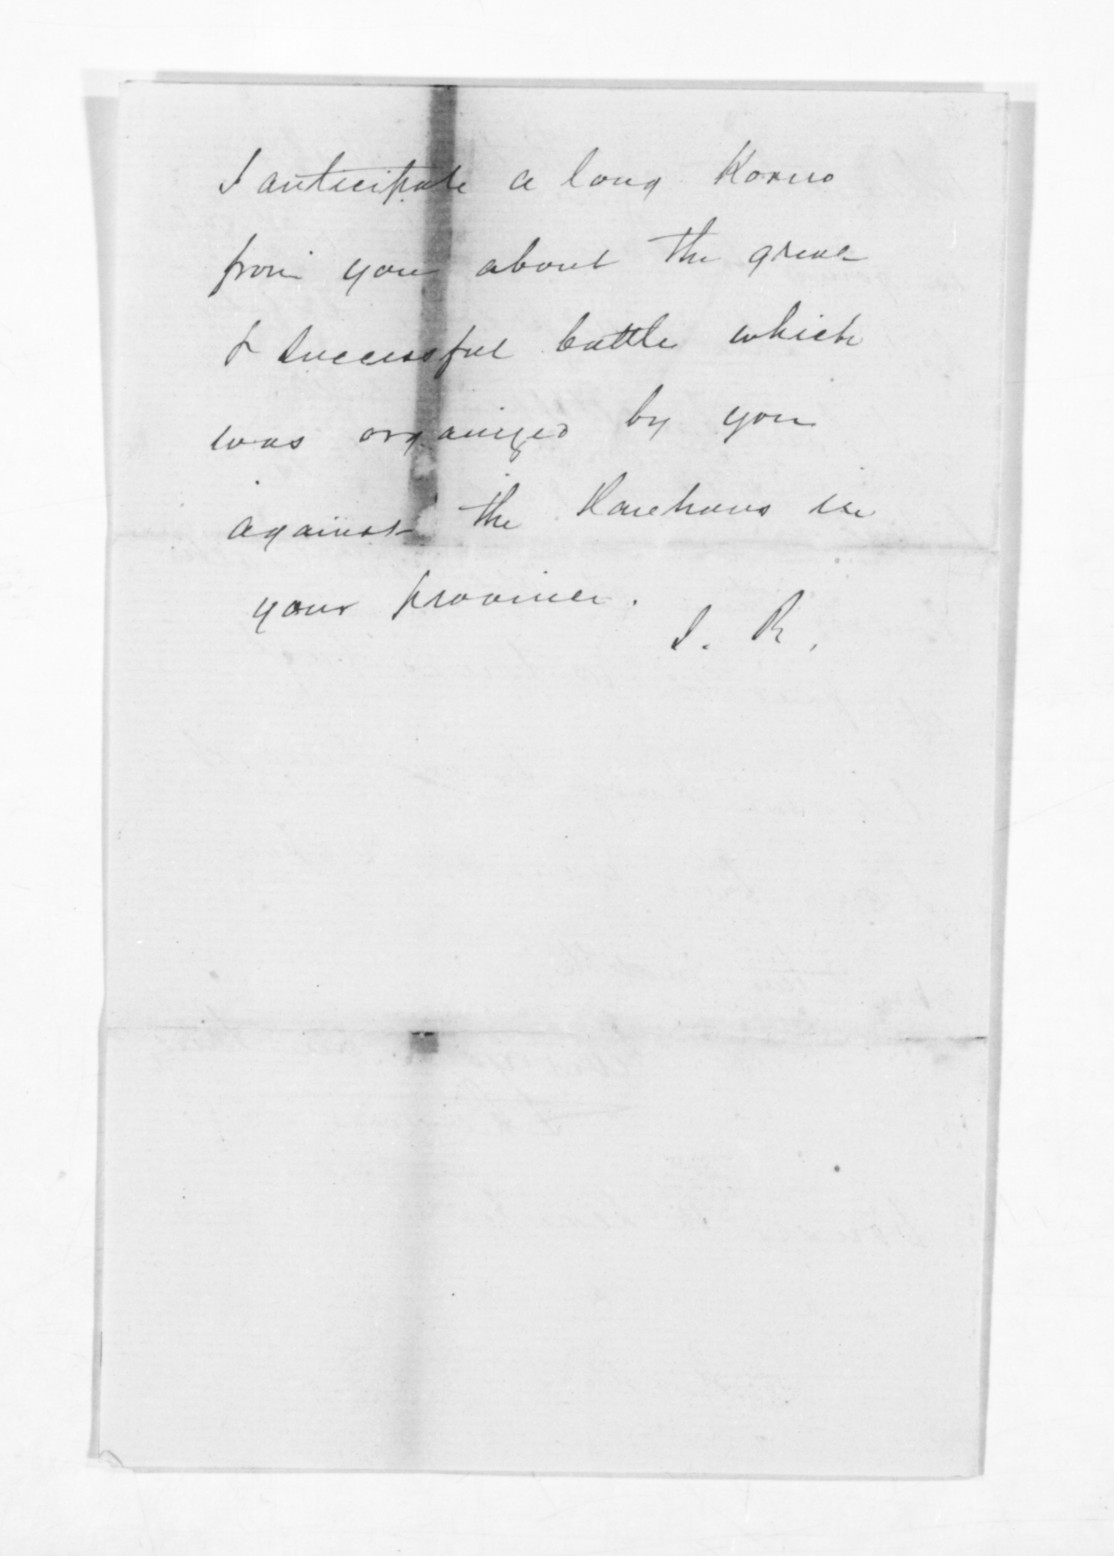 I anticipate a long Korero
from you about the great
& successful battle which
was organized by you
against the Hauhaus in
your province.
J. R.